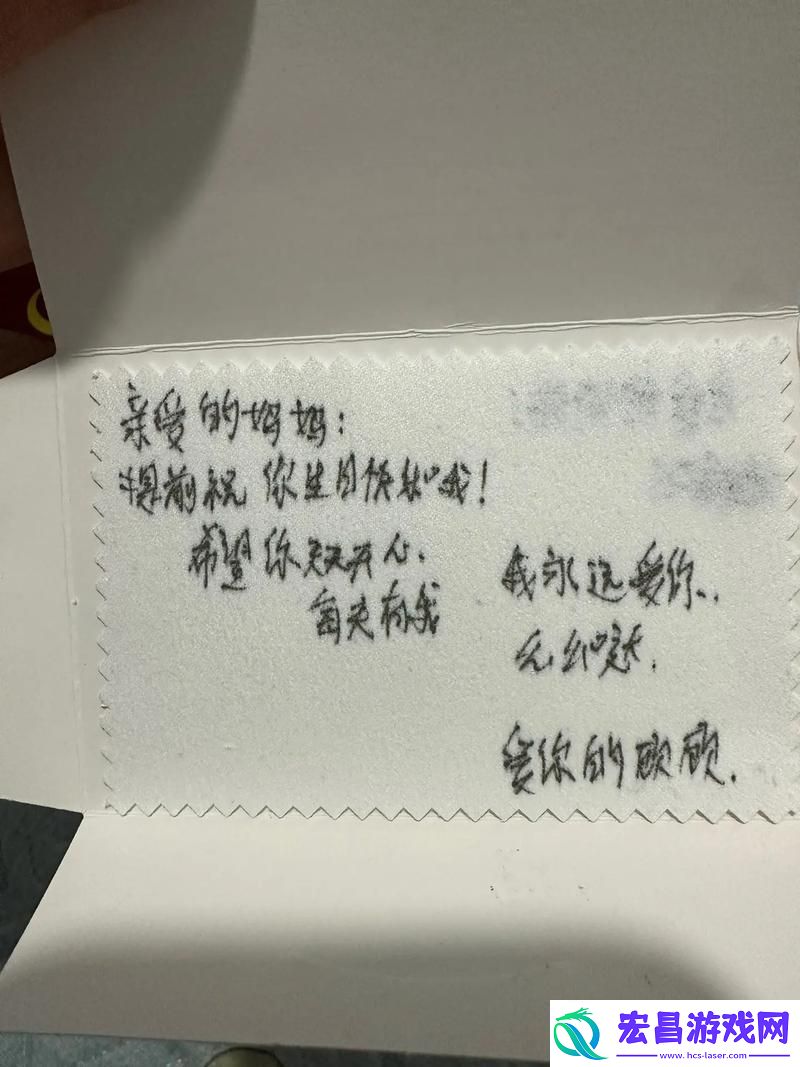 亲爱的妈妈:
提前祝你生日快乐哦!
希望你天天开心.
每天有我
我永远爱你..
无
爱你的顾顾.
宏昌游戏网
www.hcs-laser.com